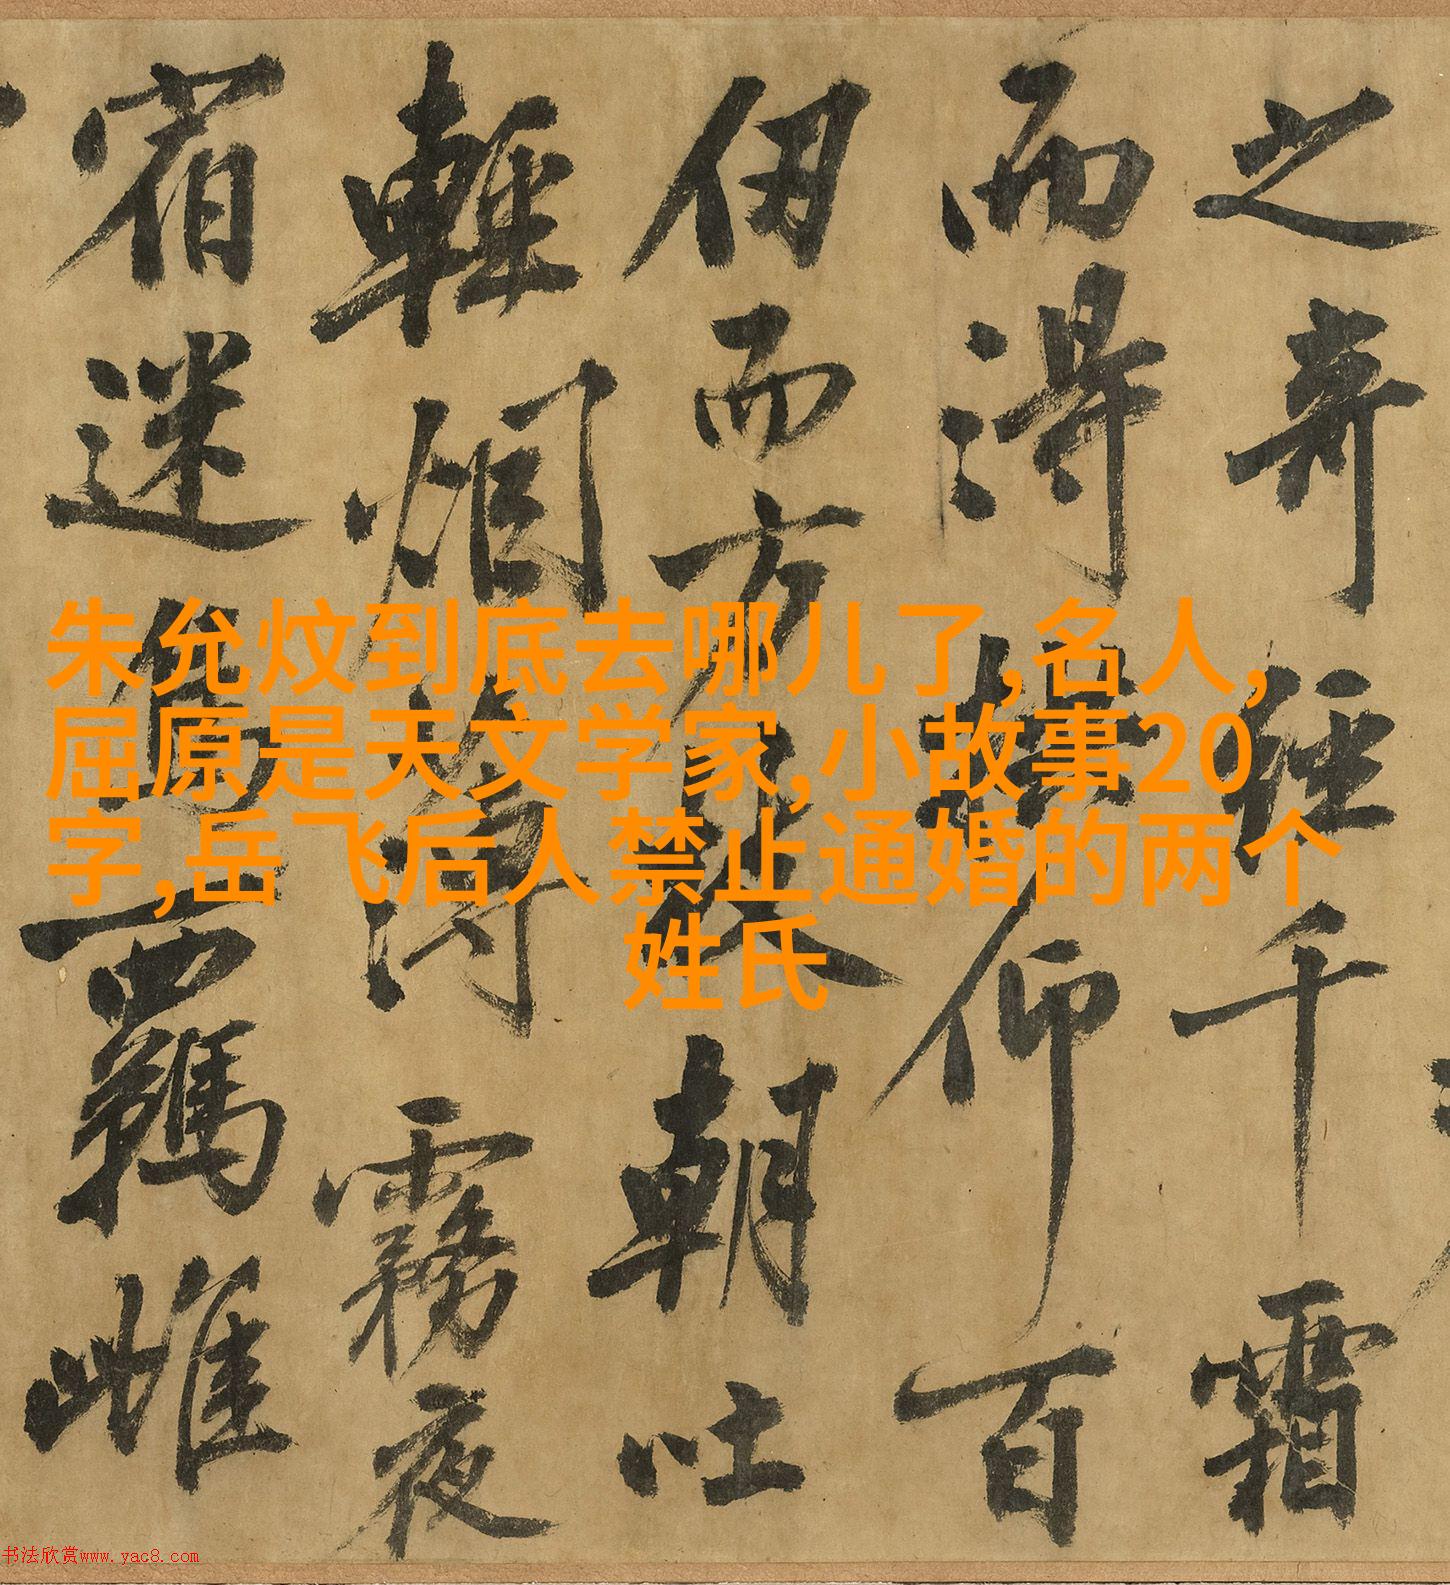 之奇經千霜
而得拱仰百
仞而方枝朝吐
輕烟薄霧夜
宿迷鳥羈雌
朱允炆到底去哪儿了,名人,
屈原是天文学家,小故事20
字,岳飞后人禁止通婚的两个
姓氏
书法欣赏www.yac8.com